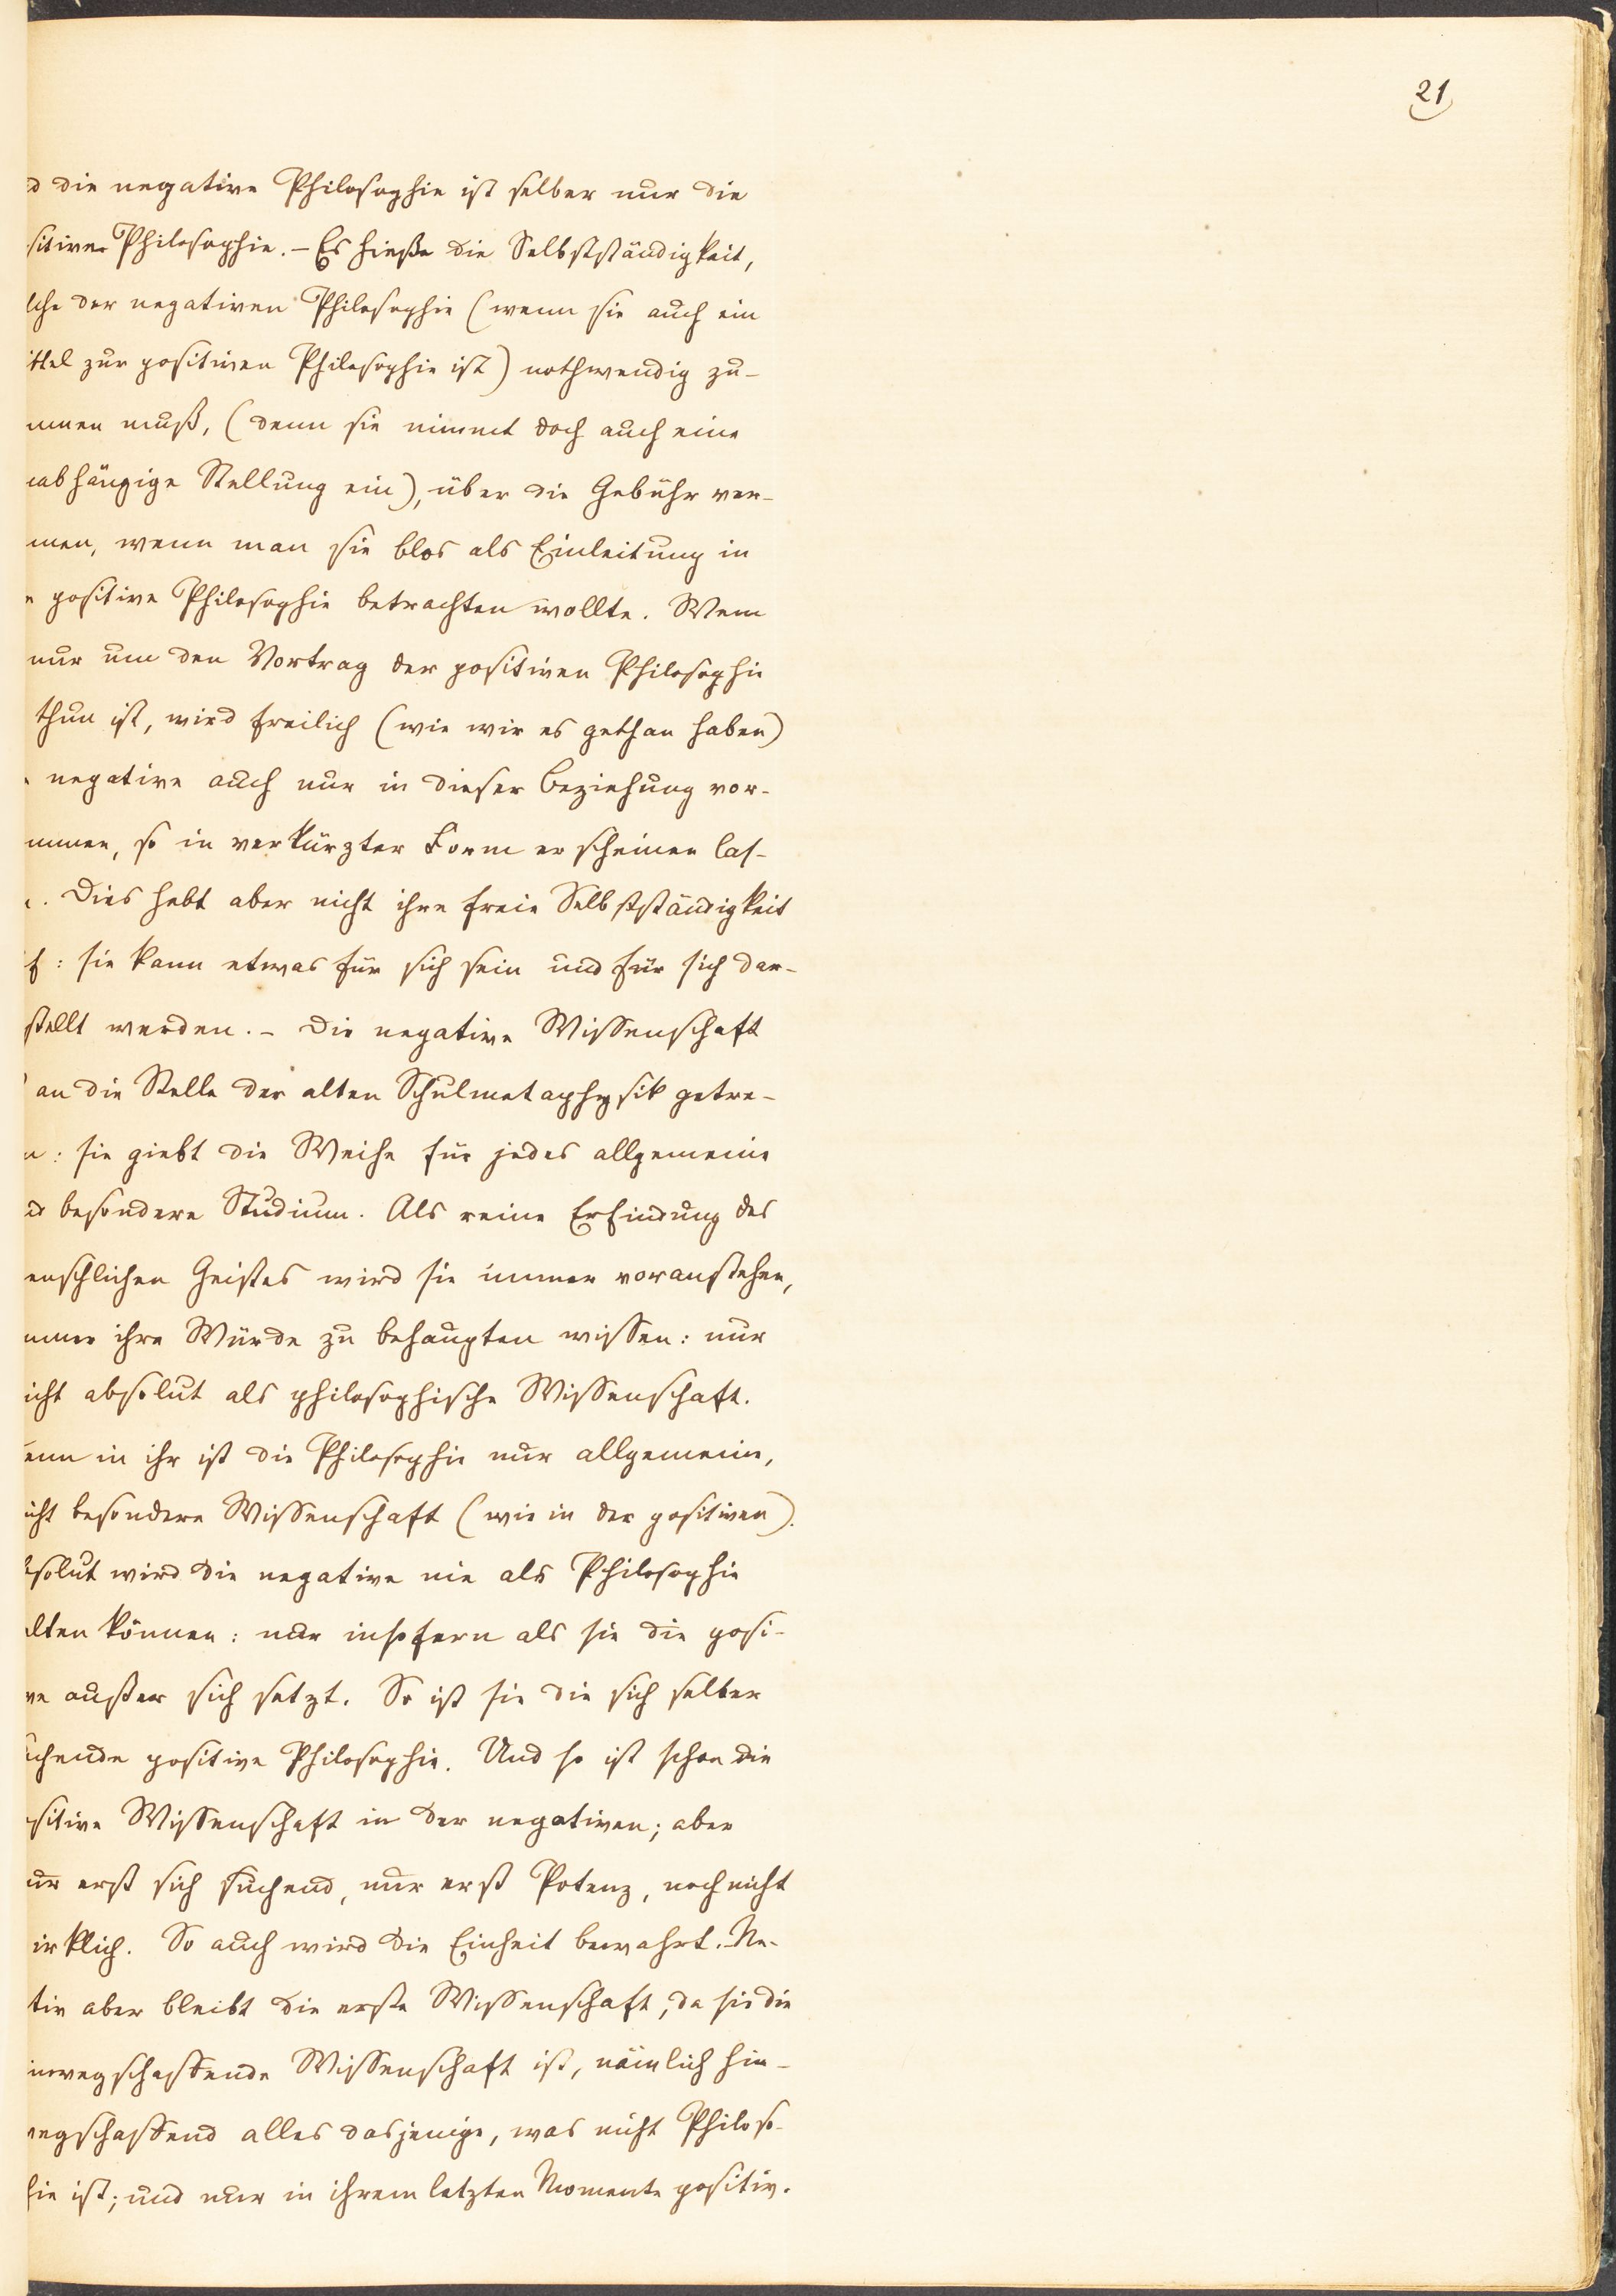 21
d die negative Philosophie ist selber nur die
sitive Philosophie. – Es hieße die Selbstständigkeit,
lche der negativen Philosophie (wenn sie auch ein
ittel zur positiven Philosophie ist) nothwendig zu-
mmen muß, (denn sie nimmt doch auch eine
nabhängige Stellung ein), über die Gebühr ver-
men, wenn man sie blos als Einleitung in
e positive Philosophie betrachten wollte. Wem
nur um den Vortrag der positiven Philosophie
thun ist, wird freilich (wie wir es gethan haben)
negative auch nur in dieser Beziehung vor-
mmen, so in verkürzter Form erscheinen las-
. Dies hebt aber nicht ihre freie Selbstständigkeit
f: sie kann etwas für sich sein und für sich dar-
stellt werden. – Die negative Wissenschaft
an die Stelle der alten Schulmetaphysik getre-
n: sie giebt die Weihe für jedes allgemeine
d besondere Studium. Als reine Erfindung des
enschlichen Geistes wird sie immer voranstehen,
mmer ihre Würde zu behaupten wissen: nur
icht absolut als philosophische Wissenschaft.
enn in ihr ist die Philosophie nur allgemeine,
icht besondere Wissenschaft (wie in der positiven).
bsolut wird die negative nie als Philosophie
lten können: nur insofern als sie die posi-
ve außer sich setzt. So ist sie die sich selber
uchende positive Philosophie. Und so ist schon die
sitive Wissenschaft in der negativen; aber
ur erst sich suchend, nur erst Potenz, noch nicht
irklich. So auch wird die Einheit bewahrt. Ne-
tiv aber bleibt die erste Wissenschaft, da sie die
inwegschaffende Wissenschaft ist, nämlich hin-
wegschaffend alles dasjenige, was nicht Philoso-
hie ist; und nur in ihrem letzten Momente positiv.